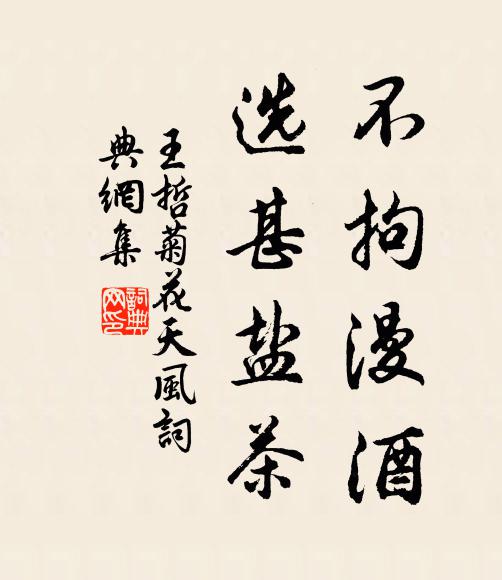 不拘漫酒
选甚盐茶
王哲菊花天風詞
典網集
詞典网印